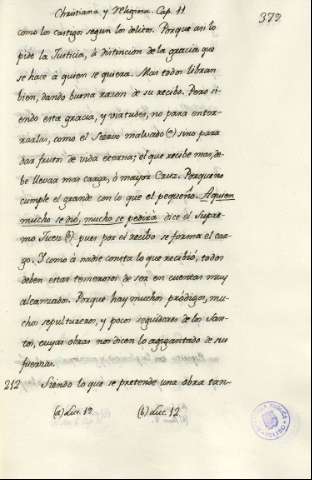 Christiana y Religiosa. Cap. 11
379
como los castigos segun los delitos. Porque asi lo
pide la Justicia, à distincion de la gracia que
se hace à quien se quiera. Mas todos libran
bien, dando buena razon de su recibo. Pero si-
endo esta gracia, y virtudes, no para enter-
rarlas, como el Siervo malvado (a) sino para
dar frutos de vida eterna; el que recibe mas, de-
be llevar mas carga, ò mayor Cruz. Porque no
cumple el grande con lo que el pequeño. A quien
mucho se dió, mucho se pedirà dice el Supre-
mo Juez (b) pues por el recibo se forma el car-
go. Y como à nadie consta lo que recibió, todos
deben estar temerosos de ser en cuentas muy
alcanzados. Porque hay muchos pródigos, mu-
chos sepultureros, y pocos seguidores de los San-
tos, cuyas obras nos dicen lo agigantado de sus
fuerzas.
212 Siendo lo que se pretende una obra tan-
(a) Luc. 19. (b) Luc. 12.